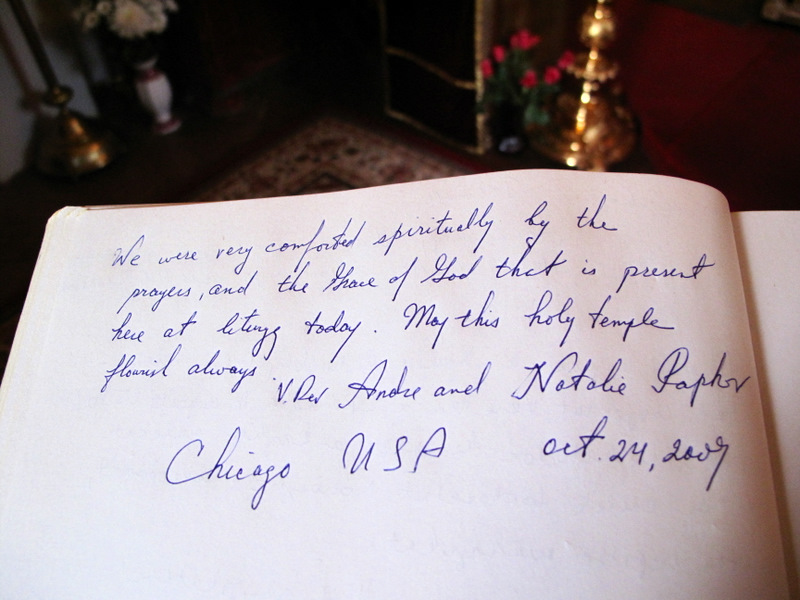 We were very comforted spiritually by the
prayers, and the Grace of God that is present
here at liturgy today. May this holy temple
flourish always.
V. Rev Andre and Natalie Papkov
Chicago USA oct. 24, 2009